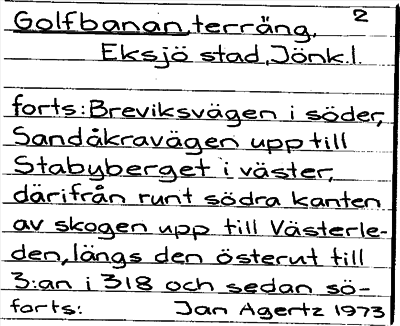 Golfbanan, terräng. 2
Eksjö stad, Jönk. l.
forts: Breviksvägen i söder,
Sandåkravägen upp till
Stabyberget i väster,
därifrån runt södra kanten
av skogen upp till Västerle-
den, längs den österut till
3:an i 318 och sedan sö-
forts: Jan Agertz 1973